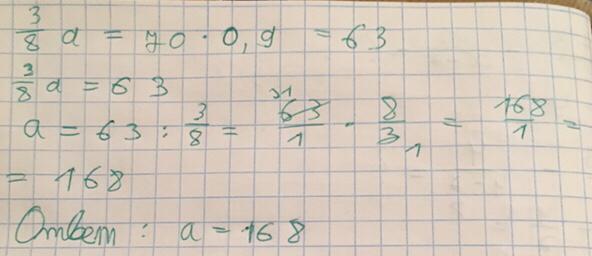 3/8 a = 70 · 0,9 = 63
3/8 a = 63
a = 63 : 3/8 = 63/1 · 8/3 = 168/1 =
= 168
Ответ : a = 168